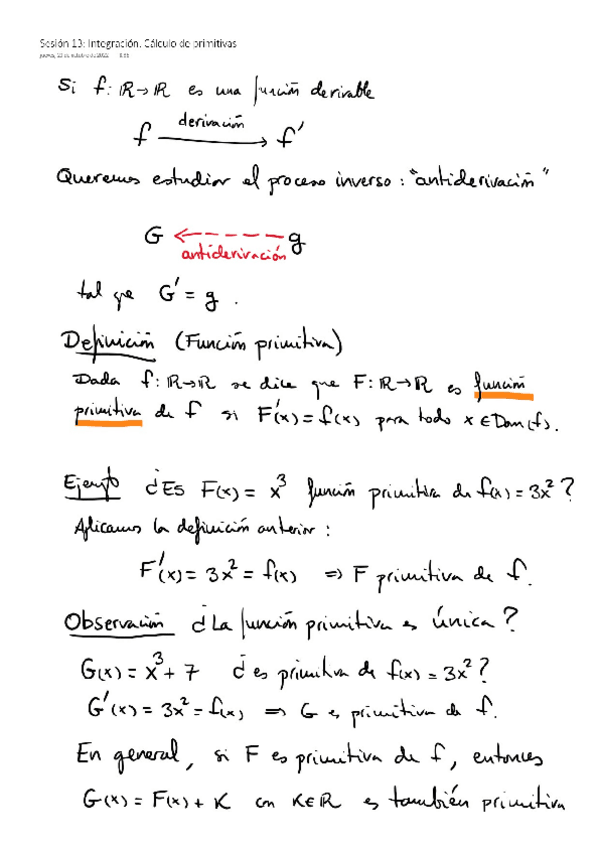 Sesión 13: Integración. Cálculo de primitivas
Si f: ℝ→ℝ es una función derivable
derivación
f ⟶ f'
Queremos estudiar el proceso inverso: "antiderivación"
G ⟵ g
antiderivación
tal que G' = g .
Definición (Función primitiva)
Dada f: ℝ→ℝ se dice que F: ℝ→ℝ es función
primitiva de f si F'(x) = f(x) para todo x ∈ Dom(f).
Ejemplo ¿Es F(x) = x³ función primitiva de f(x) = 3x²?
Aplicamos la definición anterior:
F'(x) = 3x² = f(x) ⇒ F primitiva de f.
Observación ¿La función primitiva es única?
G(x) = x³ + 7 ¿es primitiva de f(x) = 3x²?
G'(x) = 3x² = f(x) ⇒ G es primitiva de f.
En general, si F es primitiva de f, entonces
G(x) = F(x) + K con K∈ℝ es también primitiva